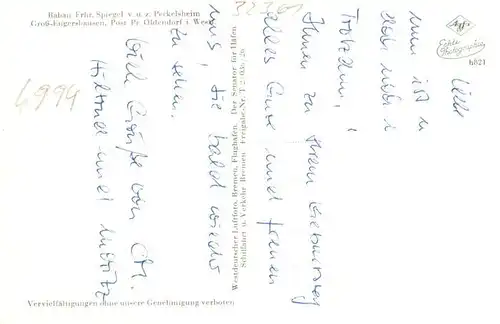 Raban Frhr. Spiegel v. u. z. Peckelsheim
Groß-Engershausen, Post Pr. Oldendorf i. Westf.
Agfa
Echte
Photographie
h821
4994
Westdeutscher Luftfoto, Bremen, Flughafen. Der Senator für Häfen,
Schiffahrt u. Verkehr Bremen Freigabe-Nr.
Liebe
nun ist
doch nicht
Trotzdem
Ihnen zu Ihrem Geburtstag
alles Gute und freuen
uns, Sie bald wieder
zu sehen.
Viele Grüße von
Hiltrud und
Vervielfältigungen ohne unsere Genehmigung verboten